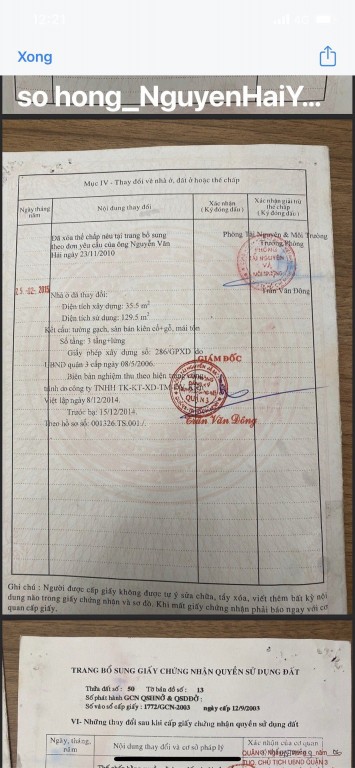 12:21
Xong
so hong_NguyenHaiY...
Mục IV - Thay đổi về nhà ở, đất ở hoặc thế chấp
Ngày tháng năm
Nội dung thay đổi
Xác nhận
( Ký đóng dấu )
Xác nhận giải trừ thế chấp
( Ký đóng dấu )
Đã xóa thế chấp nêu tại trang bổ sung
theo đơn yêu cầu của ông Nguyễn Văn
Hải ngày 23/11/2010
Phòng Tài Nguyên & Môi Trường
Trưởng Phòng
PHÒNG
TÀI NGUYÊN
VÀ
MÔI TRƯỜNG
Trần Văn Đông
25 -02- 2015
Nhà ở đã thay đổi:
Diện tích xây dựng: 35.5 m²
Diện tích sử dụng: 129.5 m²
Kết cấu: tường gạch, sàn bản kiên cố+gỗ, mái tôn
Số tầng: 3 tầng+lửng
Giấy phép xây dựng số: 286/GPXD do
UBND quận 3 cấp ngày 08/5/2006.
Biên bản nghiệm thu theo hiện trạng
hành do công ty TNHH TK-KT-XD-TM
Việt lập ngày 8/12/2014.
Trước bạ: 15/12/2014.
Theo hồ sơ số: 001326.TS.001./.
GIÁM ĐỐC
QUẬN 3
Trần Văn Đông
Ghi chú : Người được cấp giấy không được tự ý sửa chữa, tẩy xóa, viết thêm bất kỳ nội
dung nào trong giấy chứng nhận và sơ đồ. Khi mất giấy chứng nhận phải báo ngay với cơ
quan cấp giấy.
TRANG BỔ SUNG GIẤY CHỨNG NHẬN QUYỀN SỬ DỤNG ĐẤT
Thửa đất số : 50 Tờ bản đồ số : 13
Số phát hành GCN QSHNỞ & QSDĐỞ :
Số vào sổ cấp giấy : 1772/GCN-2003 ngày cấp 12/9/2003
VI- Những thay đổi sau khi cấp giấy chứng nhận quyền sử dụng đất
Ngày, tháng, năm
Nội dung thay đổi và cơ sở pháp lý
Xác nhận của cơ quan
TUQ. CHỦ TỊCH UBND QUẬN 3